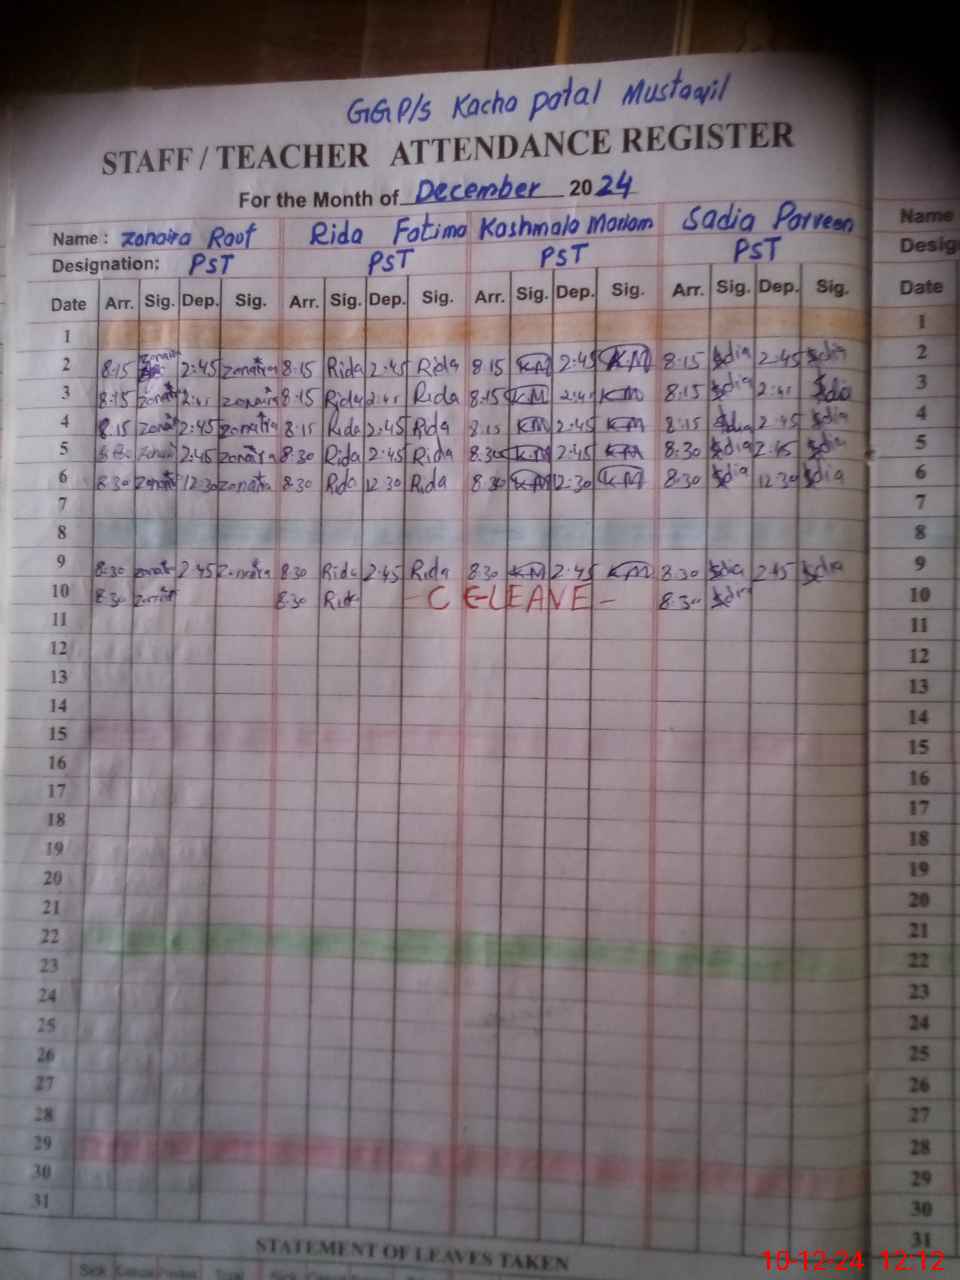 GGP/S Kacha patal Mustaqil
STAFF / TEACHER ATTENDANCE REGISTER
For the Month of December 2024
Name : Zonaira Raof Rida Fatima Kashmala Mariam Sadia Parveen Name
Designation: PST PST PST PST
Date Arr. Sig. Dep. Sig. Arr. Sig. Dep. Sig. Arr. Sig. Dep. Sig. Arr. Sig. Dep. Sig. Date
1 1
2 8:15 Zonaira 2:45 Zonaira 8:15 Rida 2:45 Rida 8:15 KM 2:45 KM 8:15 Sdia 2:45 Sdia 2
3 8:15 2:45 Zonaira 8:15 Rida 2:45 Rida 8:15 KM 2:45 KM 8:15 Sdia 2:45 Sdia 3
4 8:15 2:45 Zonaira 8:15 Rida 2:45 Rida 8:15 KM 2:45 KM 8:15 Sdia 2:45 Sdia 4
5 2:45 Zonaira 8:30 Rida 2:45 Rida 8:30 KM 2:45 KM 8:30 Sdia 2:45 Sdia 5
6 8:30 12:30 Zonaira 8:30 Rida 12:30 Rida 8:30 KM 12:30 KM 8:30 Sdia 12:30 Sdia 6
7 7
8 8
9 8:30 2:45 Zonaira 8:30 Rida 2:45 Rida 8:30 KM 2:45 KM 8:30 Sdia 2:45 Sdia 9
10 8:30 8:30 - C LEAVE - 8:30 10
11 11
12 12
13 13
14 14
15 15
16 16
17 17
18 18
19 19
20 20
21 21
22 22
23 23
24 24
25 25
26 26
27 27
28 28
29 29
30 30
31 31
STATEMENT OF LEAVES TAKEN
10-12-24 12:12